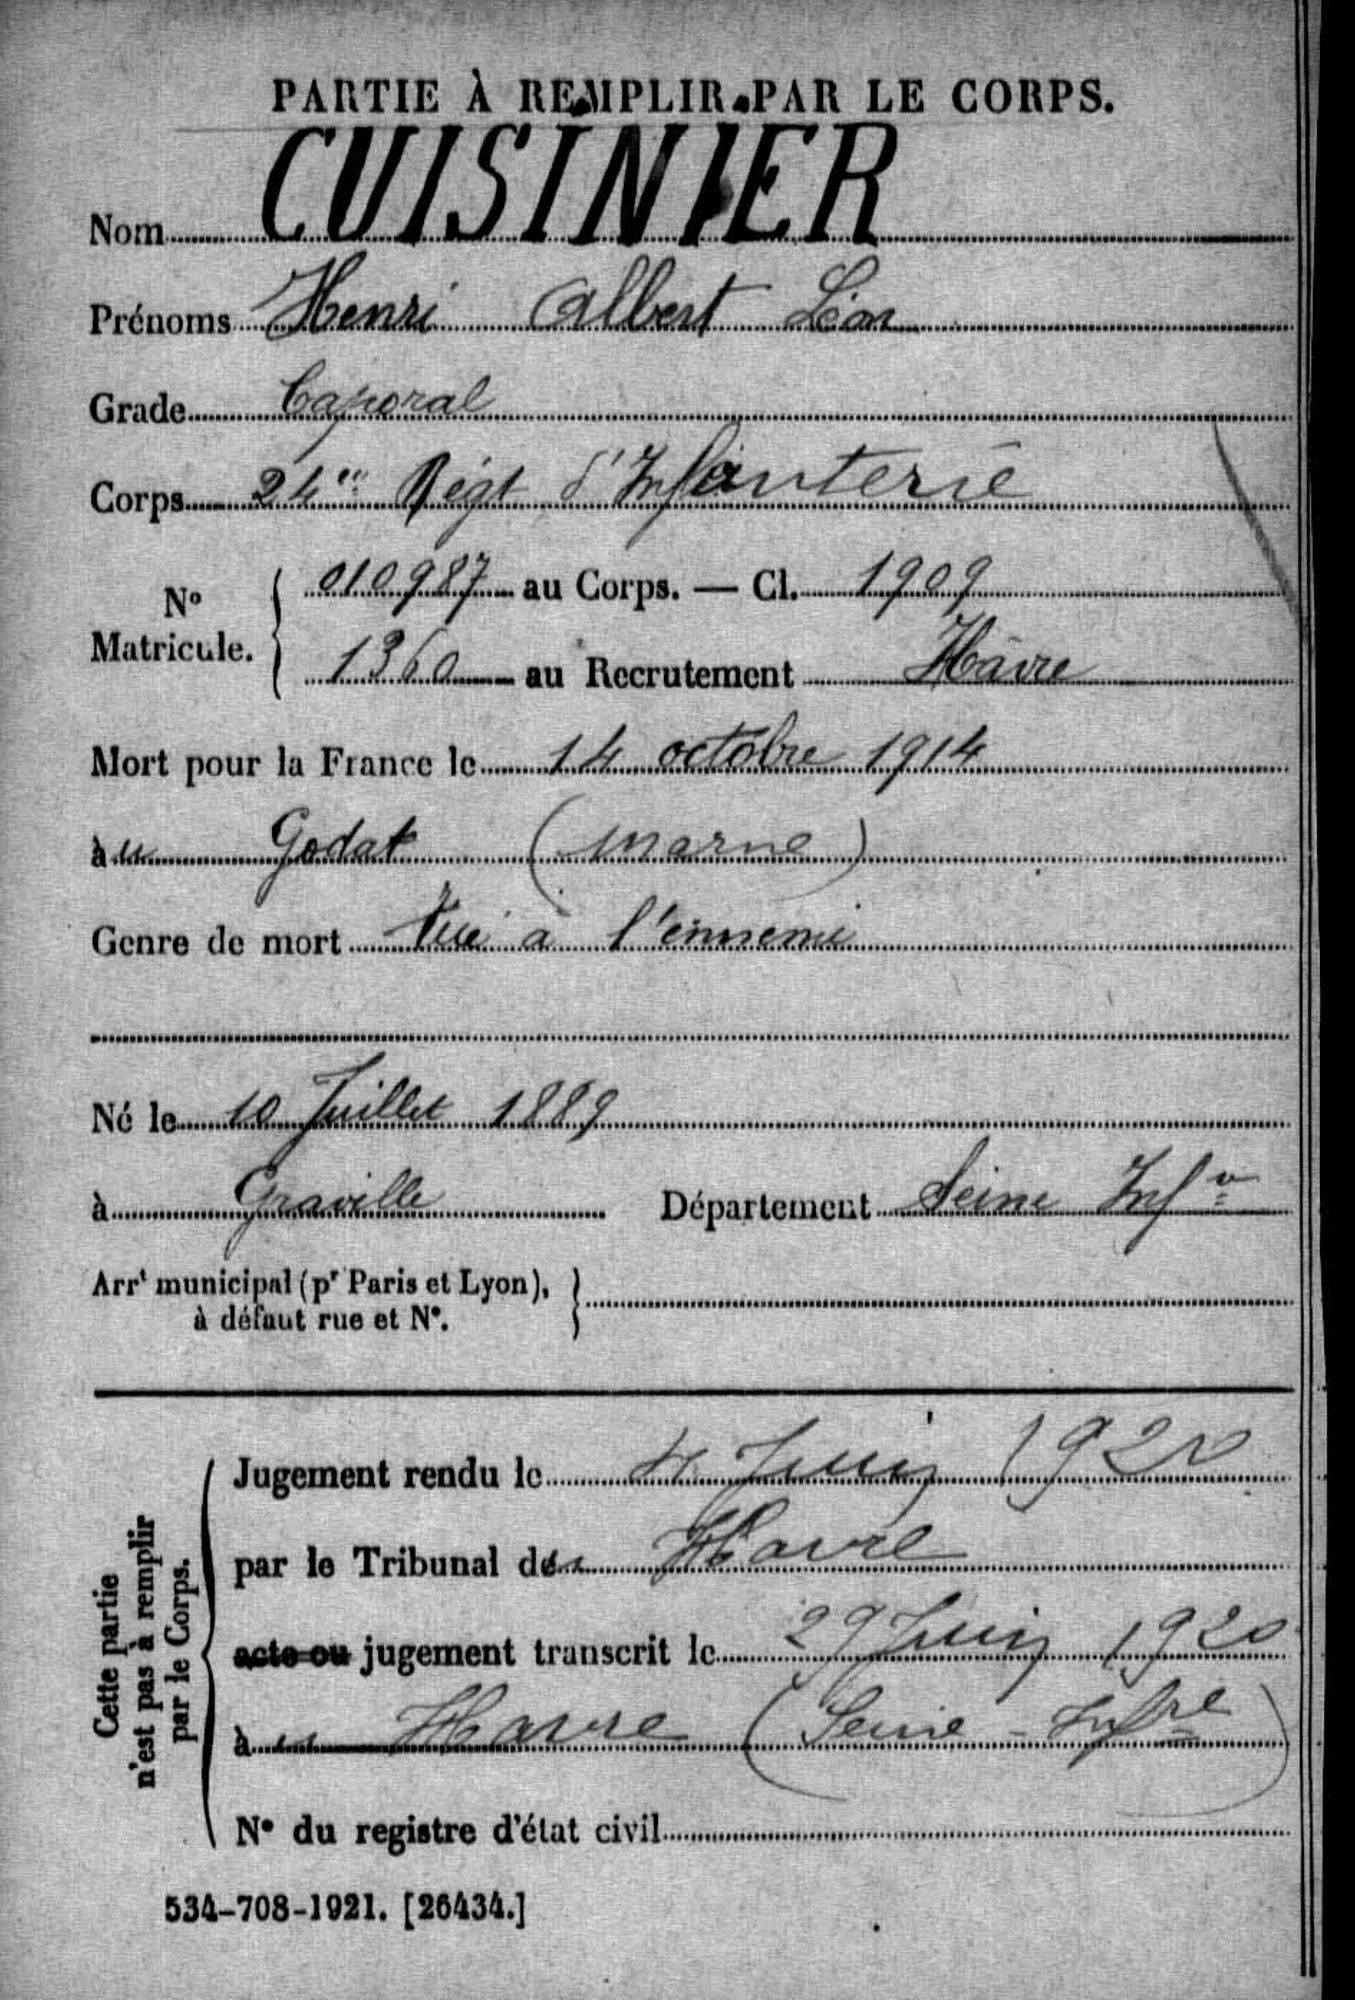 PARTIE À REMPLIR PAR LE CORPS.
Nom CUISINIER
Prénoms Henri Albert Léon
Grade Caporal
Corps 24e Régt d'Infanterie
No Matricule. { 010987 au Corps. — Cl. 1909
1360 au Recrutement Hâvre
Mort pour la France le 14 octobre 1914
au Godat (Marne)
Genre de mort Tué à l'ennemi
Né le 10 Juillet 1889
à Graville Département Seine Infre
Arrt municipal (pr Paris et Lyon), }
à défaut rue et No.
Cette partie n'est pas à remplir par le Corps.
Jugement rendu le 4 Juin 1920
par le Tribunal du Havre
acte ou jugement transcrit le 29 Juin 1920
au Havre (Seine-Infre)
No du registre d'état civil
534-708-1921. [26434.]